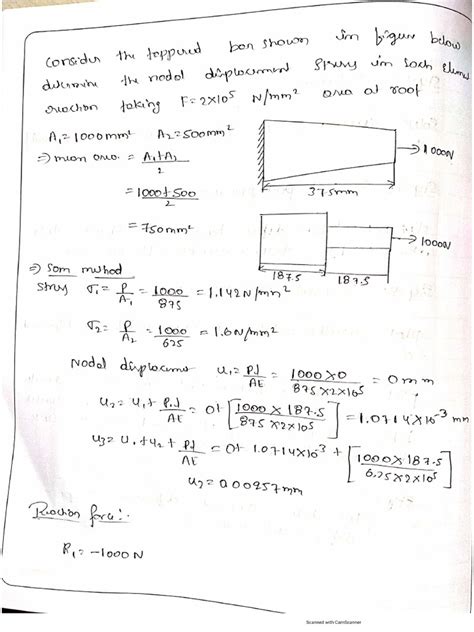 Consider the toppered bar shown in figure below
determine the nodal displacement stress in each element
reaction taking F=2×10⁵ N/mm² area at root
A₁=1000mm² A₂=500mm²
⇒ mean area = A₁+A₂ / 2
= 1000+500 / 2
= 750mm²
→ 1000N
375mm
→ 1000N
187.5 187.5
⇒ Som method
stress σ₁ = P/A₁ = 1000/875 = 1.142N/mm²
σ₂ = P/A₂ = 1000/625 = 1.6N/mm²
Nodal displaceme u₁ = P.l/AE = 1000×0 / 875×2×10⁵ = 0mm
u₂ = u₁ + P.l/AE = 0+ [1000×187.5 / 875×2×10⁵] = 1.0714×10⁻³ mm
u₃ = u₁+u₂ + P.l/AE = 0+ 1.0714×10⁻³ + [1000×187.5 / 625×2×10⁵]
u₃ = 0.00257mm
Reaction force:-
R₁ = -1000N
Scanned with CamScanner